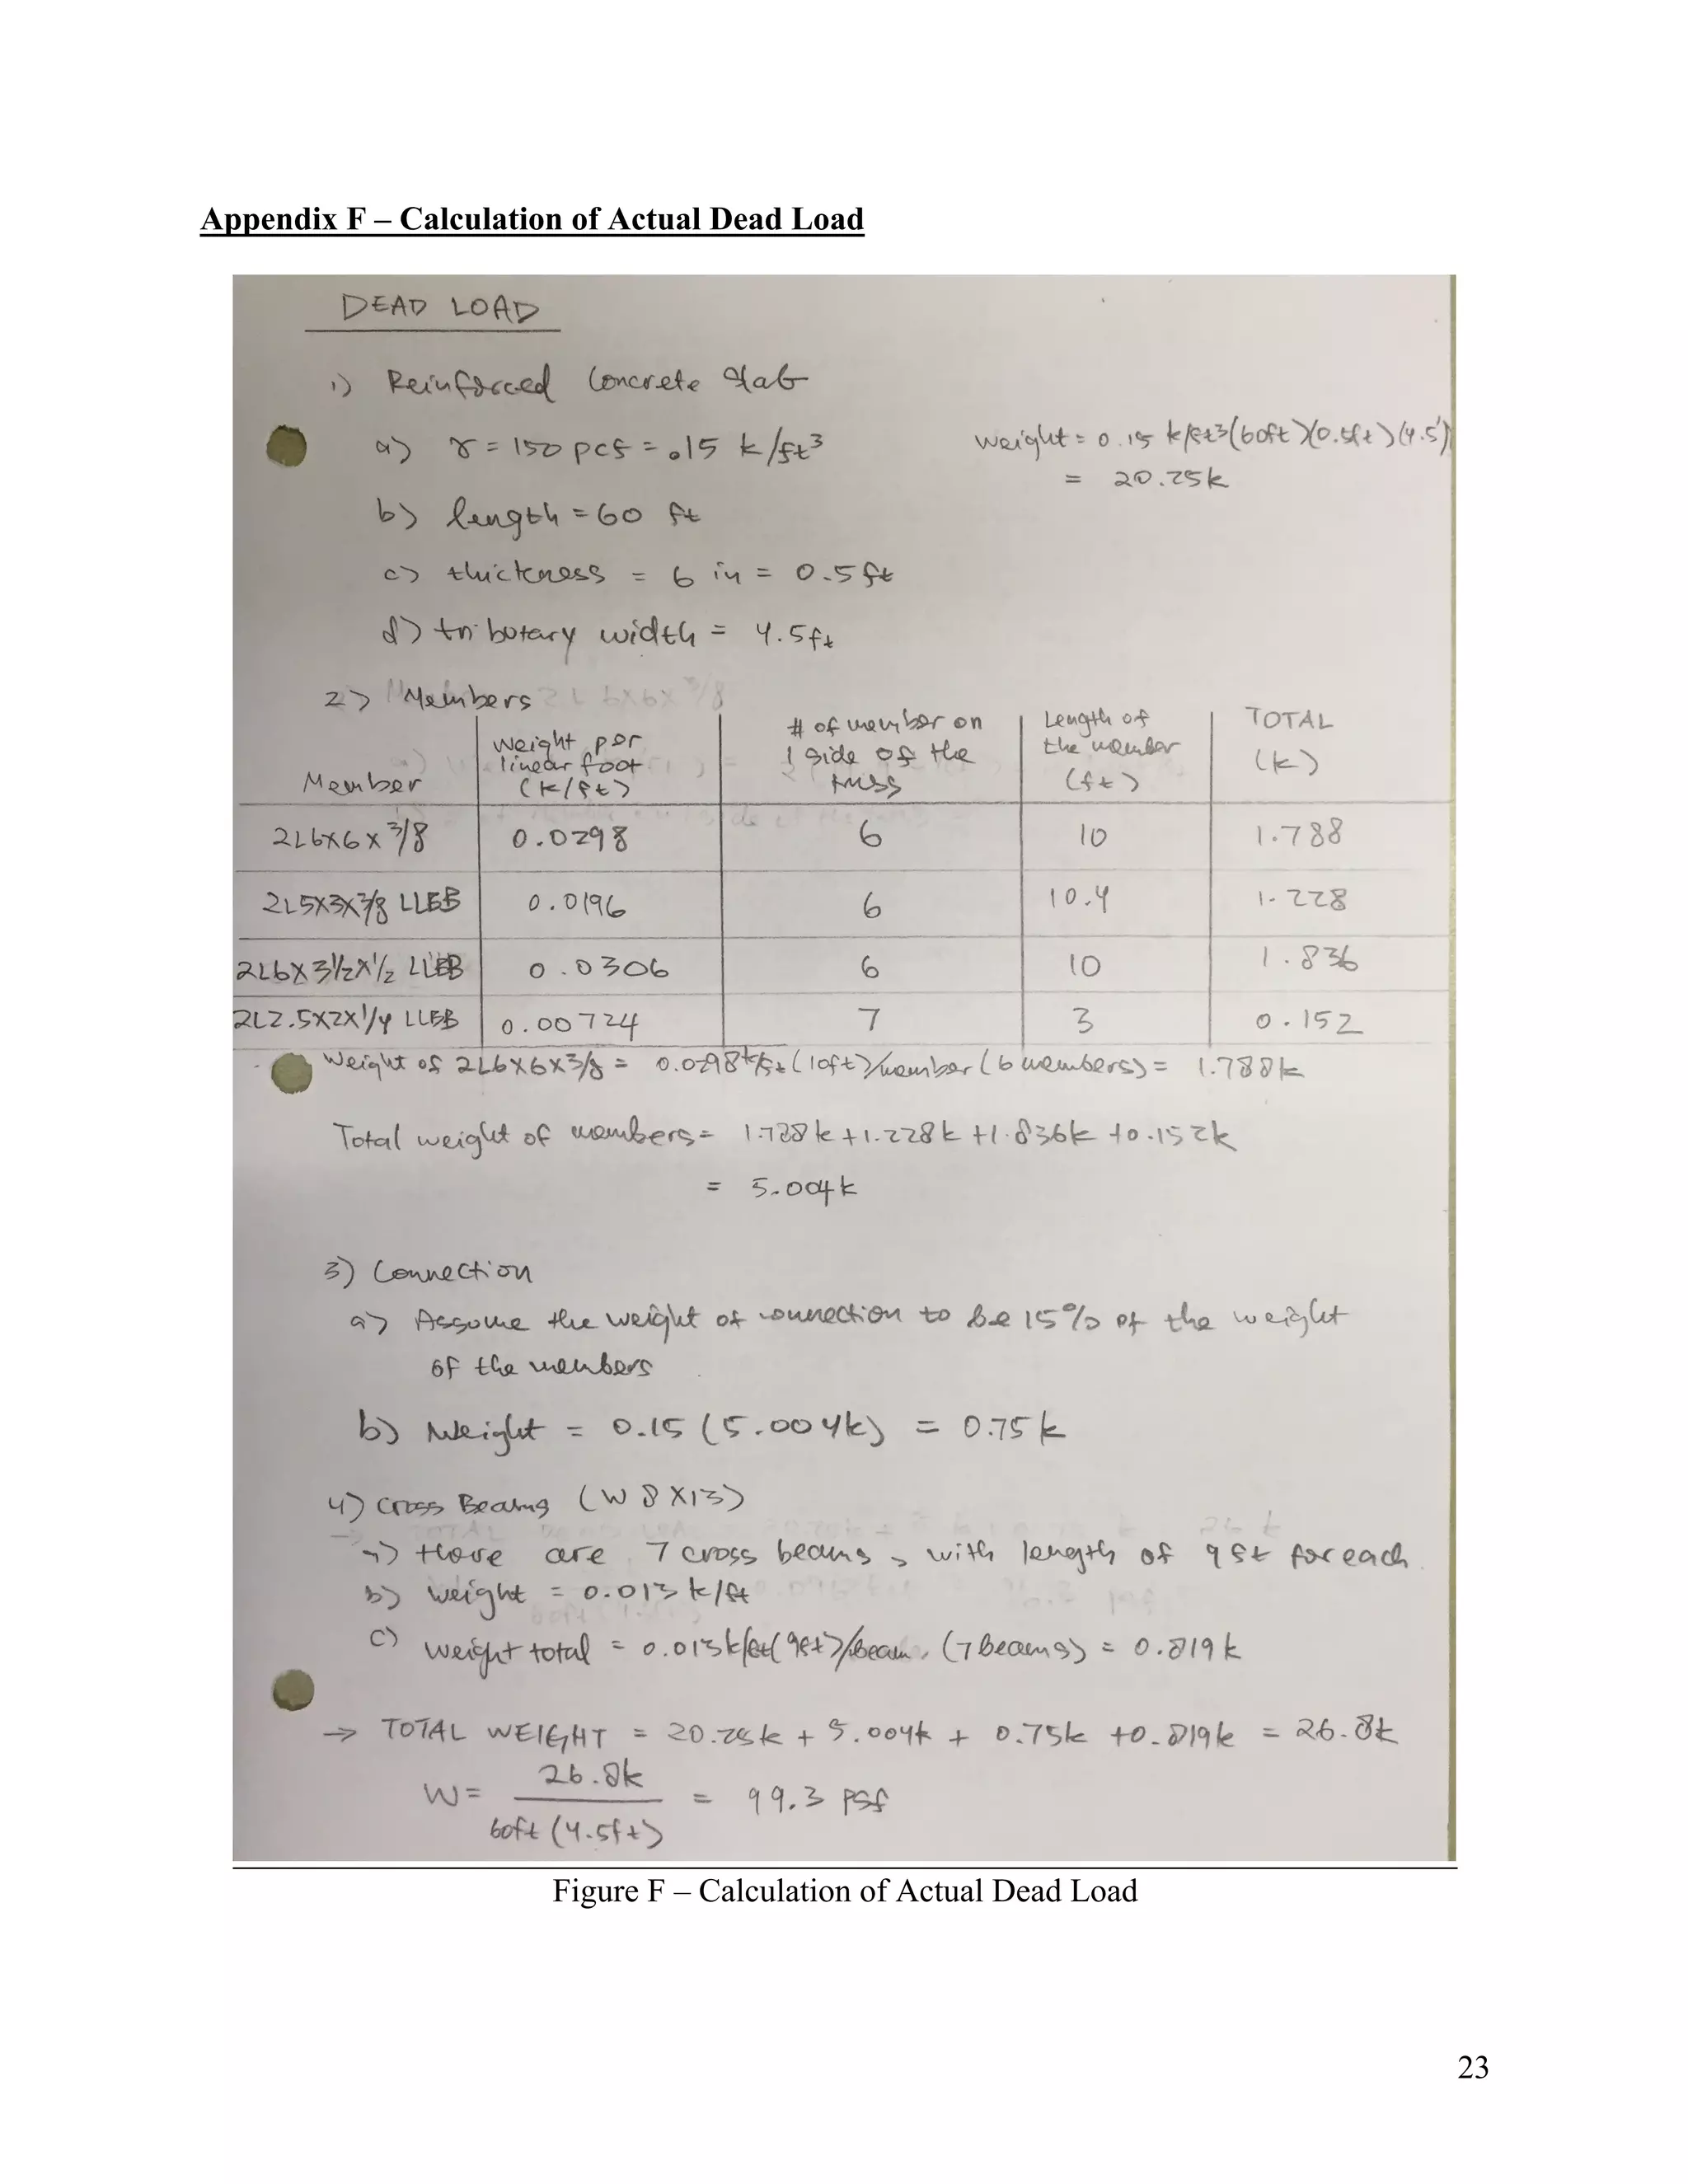 Appendix F – Calculation of Actual Dead Load
DEAD LOAD
1) Reinforced Concrete Slab
a) γ = 150 pcf = .15 k/ft³
weight = 0.15 k/ft³(60ft)(0.5ft)(4.5')
= 20.25k
b) length = 60 ft
c) thickness = 6 in = 0.5 ft
d) tributary width = 4.5ft
2) Members
Member | Weight per linear foot (k/ft) | # of member on 1 side of the truss | Length of the member (ft) | TOTAL (k)
2L6x6x3/8 | 0.0298 | 6 | 10 | 1.788
2L5x3x3/8 LLBB | 0.0196 | 6 | 10.4 | 1.228
2L6x3½x½ LLBB | 0.0306 | 6 | 10 | 1.836
2L2.5x2x1/4 LLBB | 0.00724 | 7 | 3 | 0.152
Weight of 2L6x6x3/8 = 0.0298k/ft (10ft)/member (6 members) = 1.788k
Total weight of members = 1.788k + 1.228k + 1.836k + 0.152k
= 5.004k
3) Connection
a) Assume the weight of connection to be 15% of the weight
of the members
b) Weight = 0.15 (5.004k) = 0.75k
4) Cross Beams (W8x13)
a) there are 7 cross beams, with length of 9ft for each
b) weight = 0.013 k/ft
c) weight total = 0.013k/ft(9ft)/beam (7 beams) = 0.819k
→ TOTAL WEIGHT = 20.25k + 5.004k + 0.75k + 0.819k = 26.8k
W = 26.8k / 60ft (4.5ft) = 99.3 psf
Figure F – Calculation of Actual Dead Load
23